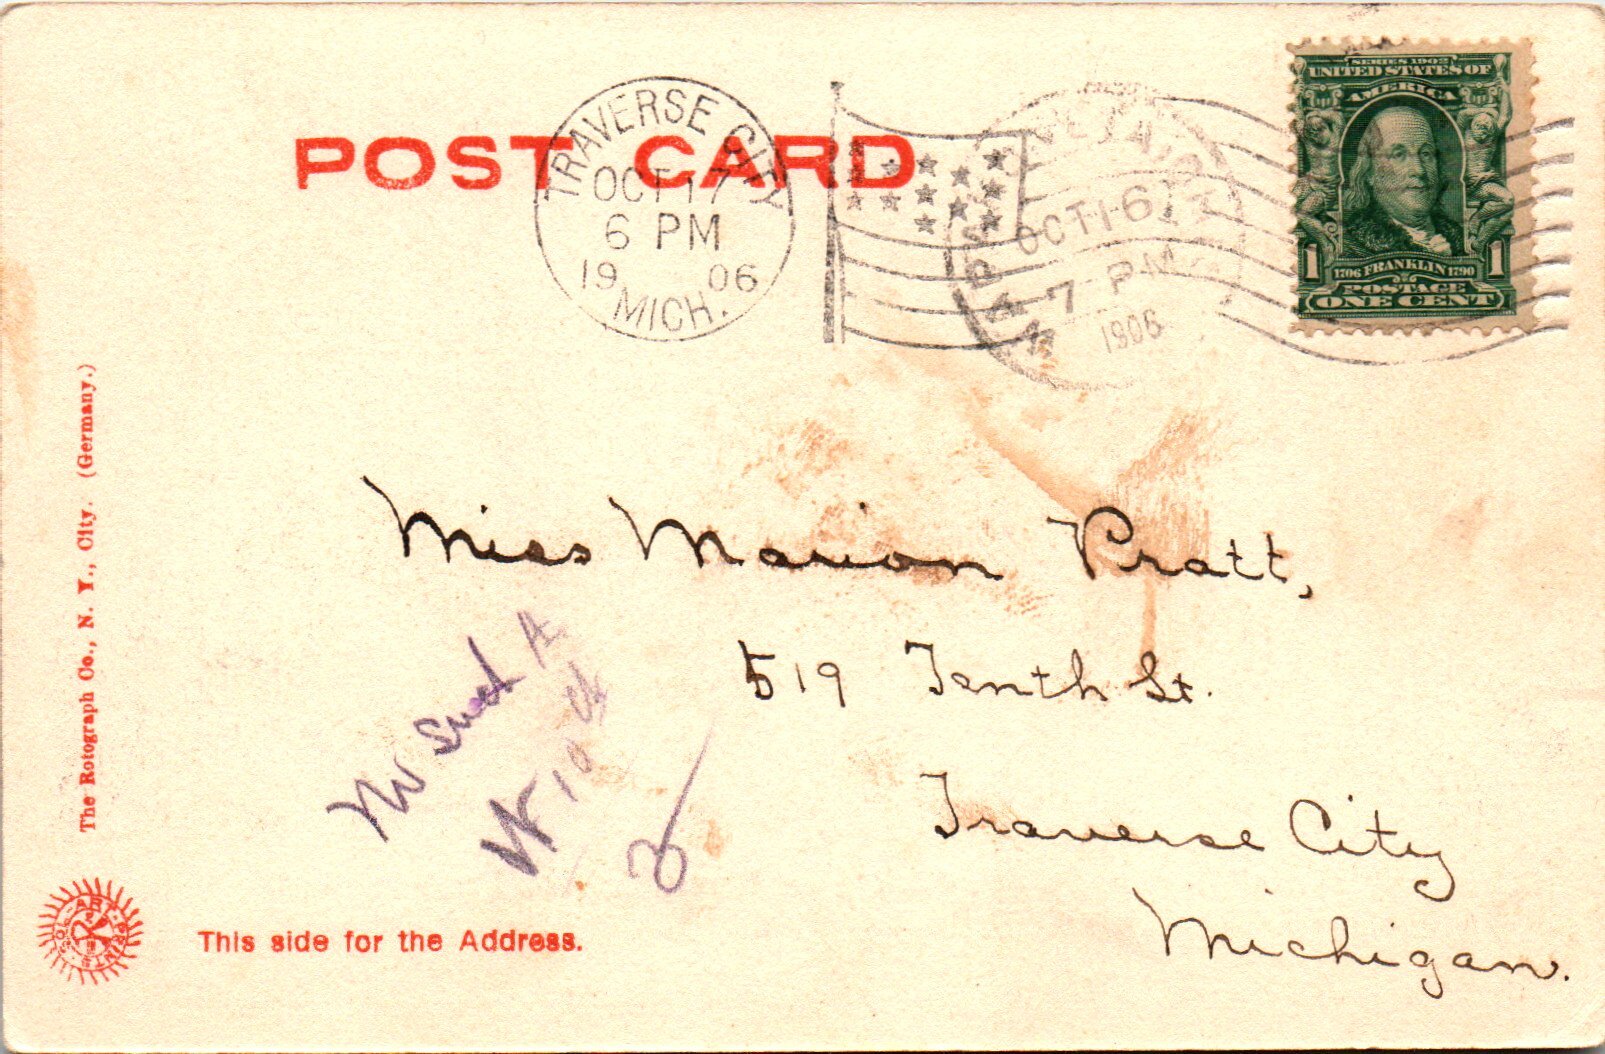 POST CARD
TRAVERSE CITY
OCT 17
6 PM
19 06
MICH.
OCT 16
7 PM
1906
SERIES 1902
UNITED STATES OF
AMERICA
1 1706 FRANKLIN 1790 1
POSTAGE
ONE CENT
The Rotograph Co., N. Y., City. (Germany.)
Miss Marion Pratt,
519 Tenth St.
Traverse City
Michigan.
This side for the Address.